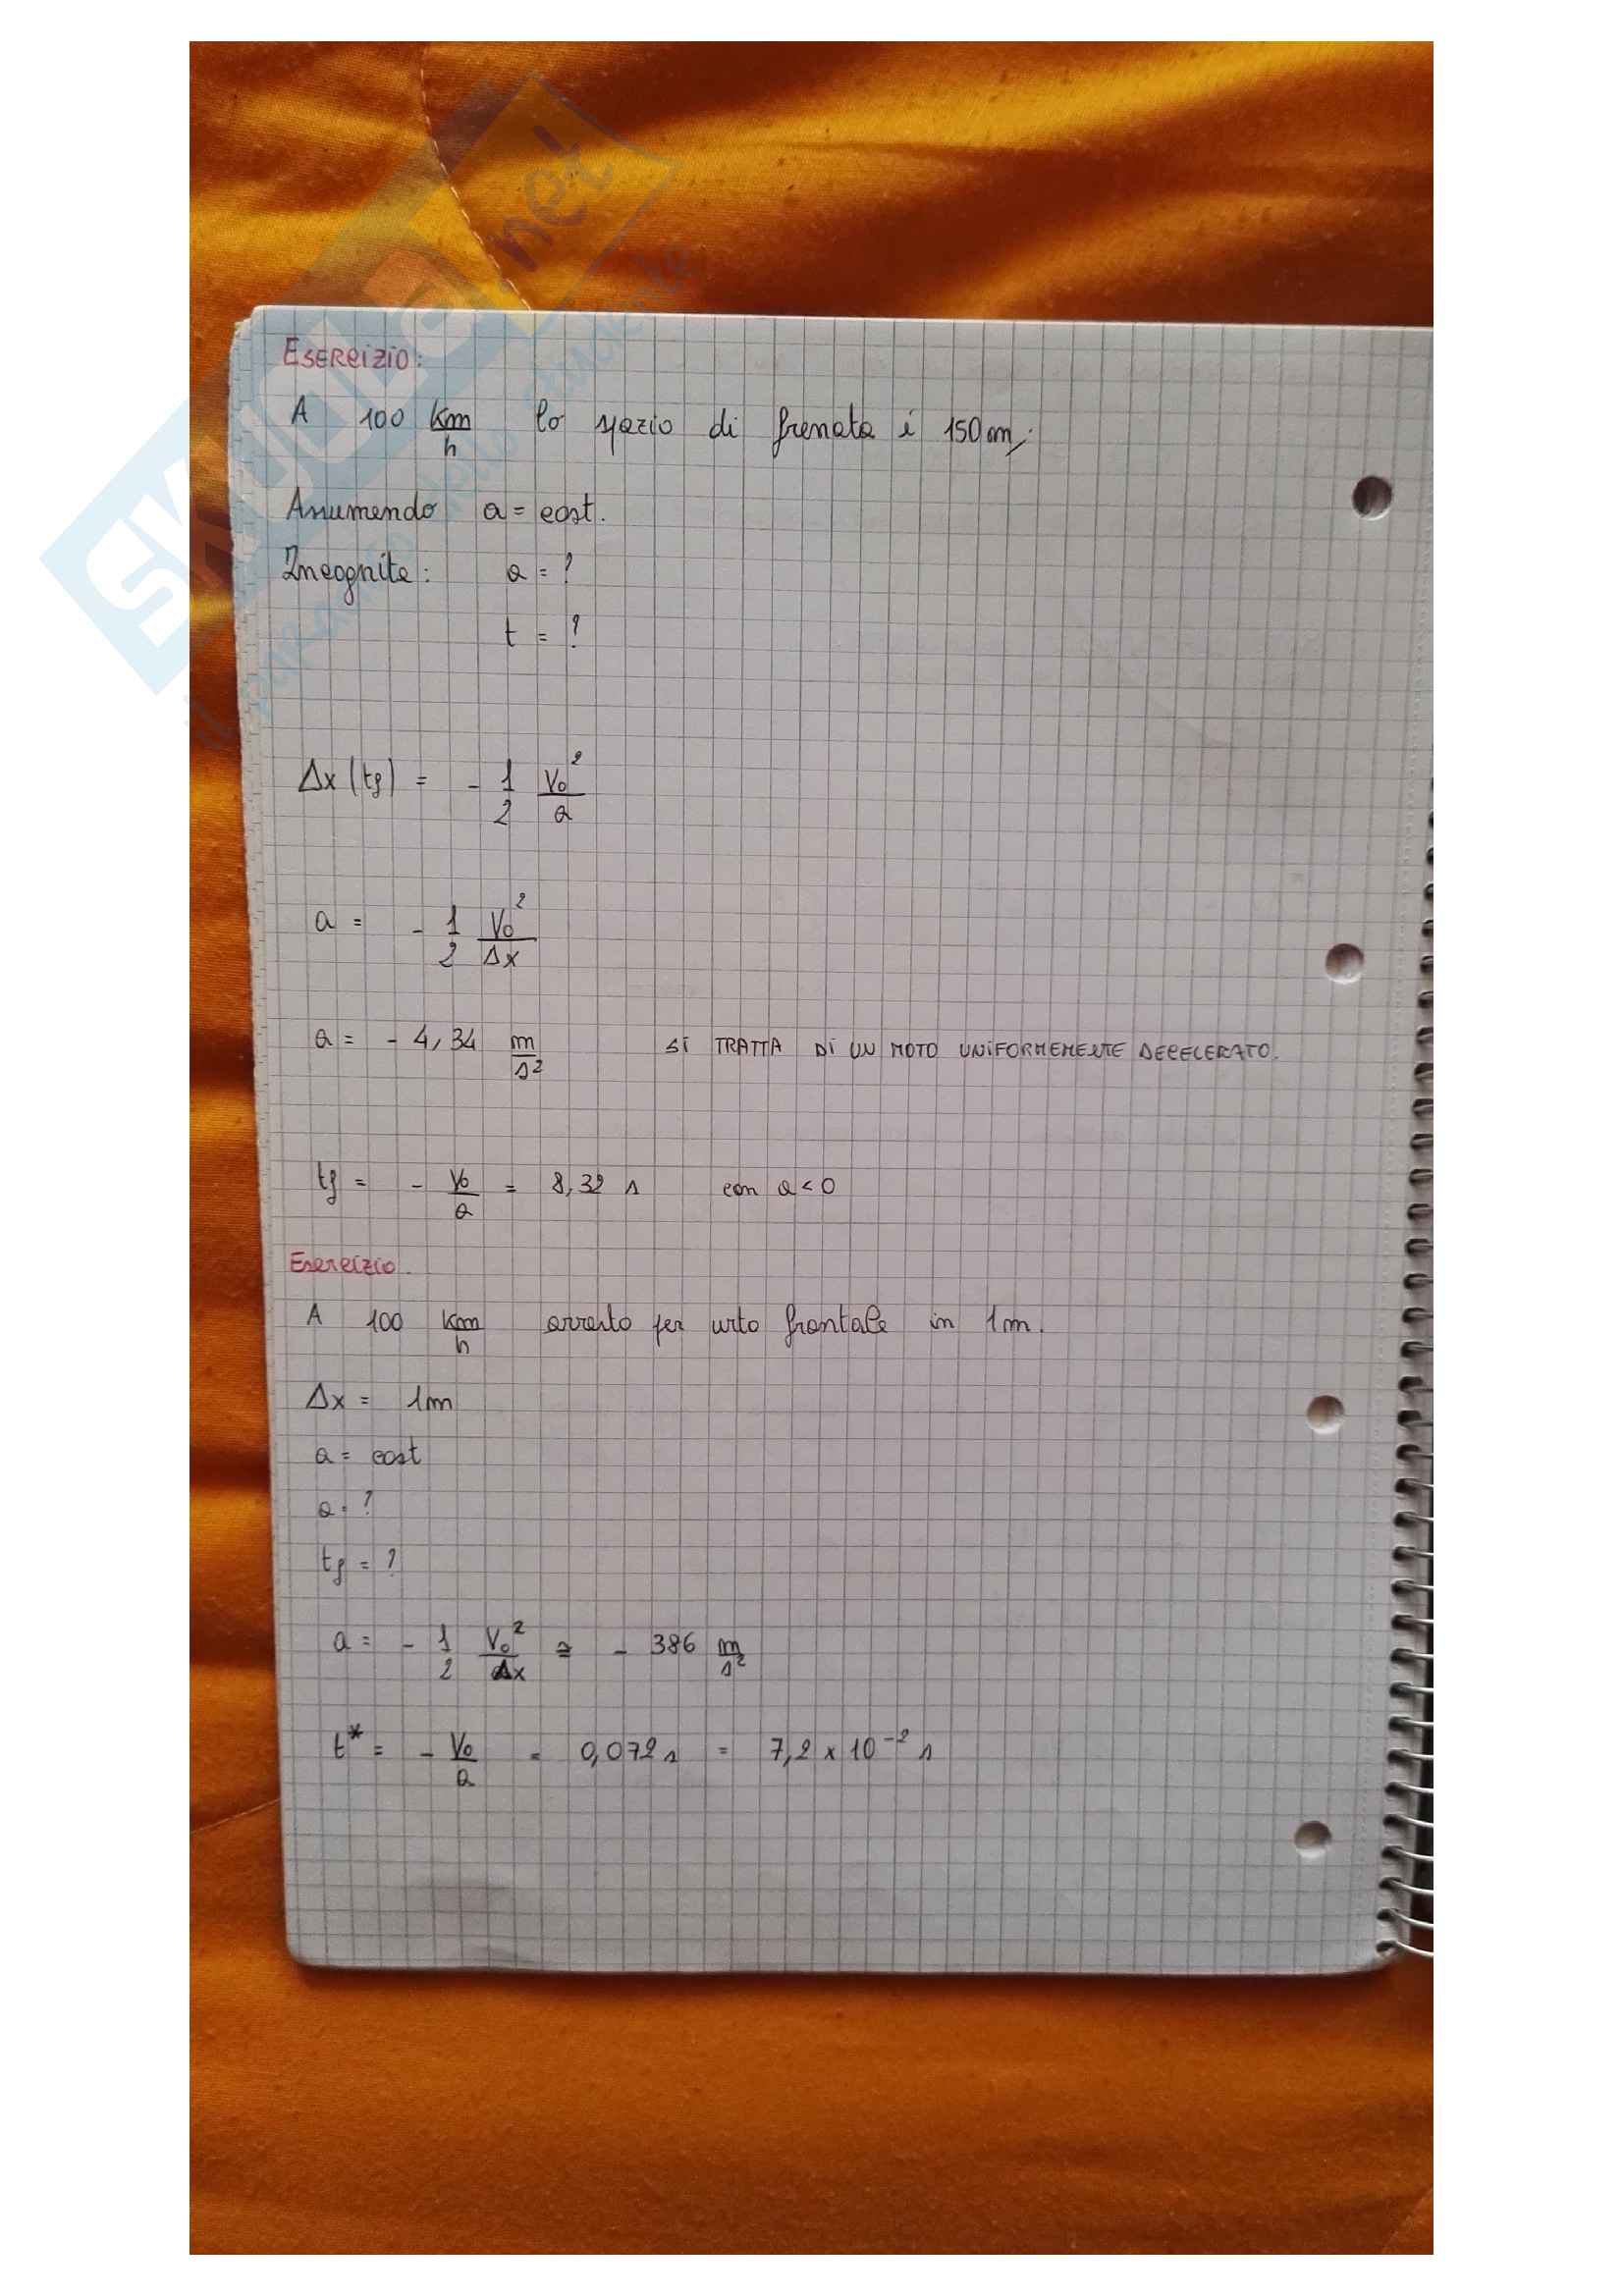 SKUOLA.net
il paradiso dello studente
ESERCIZIO:
A 100 Km/h lo spazio di frenata è 150 m.
Assumendo a = cost.
Incognite: a = ?
t = ?
Δx (tf) = - 1/2 V₀²/a
a = - 1/2 V₀²/Δx
a = - 4,34 m/s² SI TRATTA DI UN MOTO UNIFORMEMENTE DECELERATO.
tf = - V₀/a = 8,32 s con a < 0
Esercizio.
A 100 Km/h arresto per urto frontale in 1m.
Δx = 1m
a = cost
a = ?
tf = ?
a = - 1/2 V₀²/Δx ≅ - 386 m/s²
t* = - V₀/a = 0,072 s = 7,2 x 10⁻² s